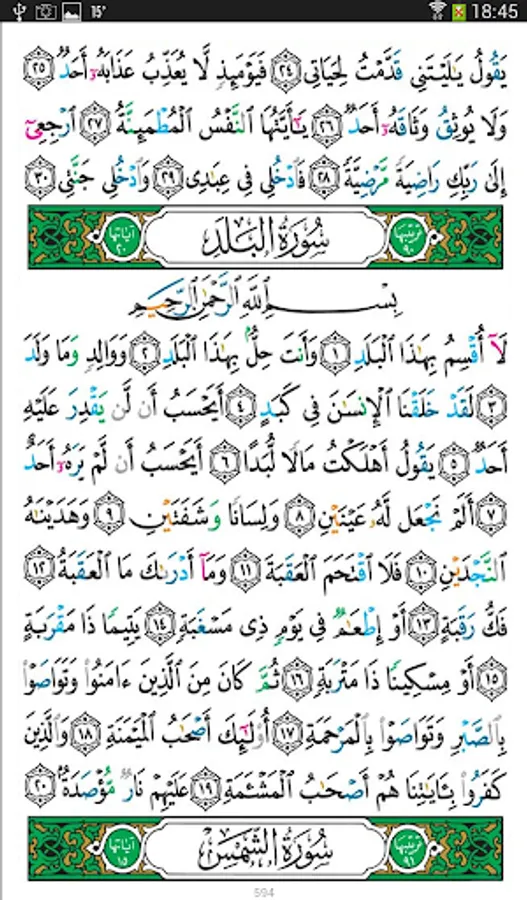 15° 18:45
يَقُولُ يَٰلَيْتَنِى قَدَّمْتُ لِحَيَاتِى ٢٤ فَيَوْمَئِذٍ لَّا يُعَذِّبُ عَذَابَهُۥٓ أَحَدٌ ٢٥
وَلَا يُوثِقُ وَثَاقَهُۥٓ أَحَدٌ ٢٦ يَٰٓأَيَّتُهَا ٱلنَّفْسُ ٱلْمُطْمَئِنَّةُ ٢٧ ٱرْجِعِىٓ
إِلَىٰ رَبِّكِ رَاضِيَةً مَّرْضِيَّةً ٢٨ فَٱدْخُلِى فِى عِبَٰدِى ٢٩ وَٱدْخُلِى جَنَّتِى ٣٠
ترتيبها ٩٠ سُورَةُ البَلَدِ آياتها ٢٠
بِسْمِ ٱللَّهِ ٱلرَّحْمَٰنِ ٱلرَّحِيمِ
لَآ أُقْسِمُ بِهَٰذَا ٱلْبَلَدِ ١ وَأَنتَ حِلٌّۢ بِهَٰذَا ٱلْبَلَدِ ٢ وَوَالِدٍ وَمَا وَلَدَ
٣ لَقَدْ خَلَقْنَا ٱلْإِنسَٰنَ فِى كَبَدٍ ٤ أَيَحْسَبُ أَن لَّن يَقْدِرَ عَلَيْهِ
أَحَدٌ ٥ يَقُولُ أَهْلَكْتُ مَالًا لُّبَدًا ٦ أَيَحْسَبُ أَن لَّمْ يَرَهُۥٓ أَحَدٌ
٧ أَلَمْ نَجْعَل لَّهُۥ عَيْنَيْنِ ٨ وَلِسَانًا وَشَفَتَيْنِ ٩ وَهَدَيْنَٰهُ
ٱلنَّجْدَيْنِ ١٠ فَلَا ٱقْتَحَمَ ٱلْعَقَبَةَ ١١ وَمَآ أَدْرَىٰكَ مَا ٱلْعَقَبَةُ ١٢
فَكُّ رَقَبَةٍ ١٣ أَوْ إِطْعَٰمٌ فِى يَوْمٍ ذِى مَسْغَبَةٍ ١٤ يَتِيمًا ذَا مَقْرَبَةٍ
١٥ أَوْ مِسْكِينًا ذَا مَتْرَبَةٍ ١٦ ثُمَّ كَانَ مِنَ ٱلَّذِينَ ءَامَنُوا۟ وَتَوَاصَوْا۟
بِٱلصَّبْرِ وَتَوَاصَوْا۟ بِٱلْمَرْحَمَةِ ١٧ أُو۟لَٰٓئِكَ أَصْحَٰبُ ٱلْمَيْمَنَةِ ١٨ وَٱلَّذِينَ
كَفَرُوا۟ بِـَٔايَٰتِنَا هُمْ أَصْحَٰبُ ٱلْمَشْـَٔمَةِ ١٩ عَلَيْهِمْ نَارٌ مُّؤْصَدَةٌۢ ٢٠
ترتيبها ٩١ سُورَةُ الشَّمْسِ آياتها ١٥
594